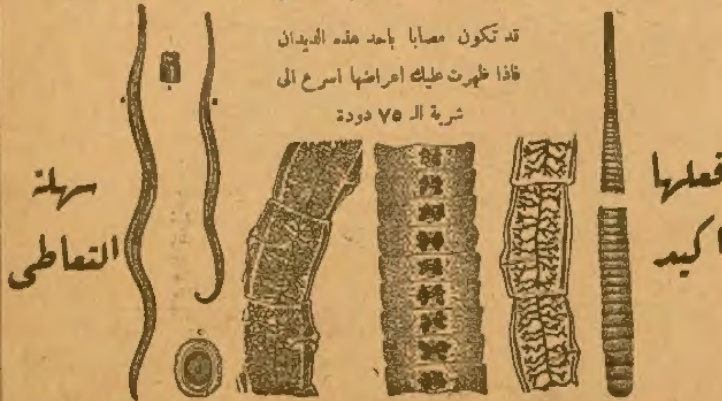 قد تكون مصابا باحد هذه الديدان
فاذا ظهرت عليك اعراضها اسرع الى
شربة الـ ٧٥ دودة
فعلها
اكيد
سهلة
التعاطى